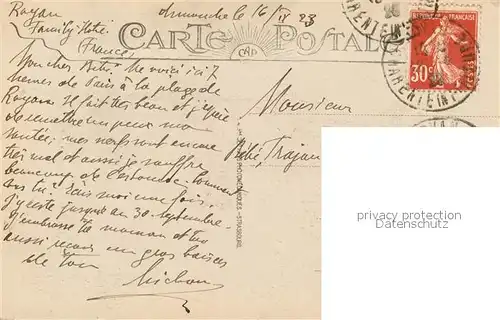 Royan dimanche le 16/IX 23
Family Hôtel
(France)
CARTE POSTALE
CAP
REPUBLIQUE FRANÇAISE
POSTES
30c
CHARENTE INFRE
Mon cher Me voici ici 7
de Paris à la plage de
Royan. Il fait très beau et j'espère
de remettre un peu ma
santée; mes nerfs sont encore
très mal et aussi je souffre
beaucoup de l'estomac. Comment
vas tu? Ecris moi une fois.
J'y reste jusqu'au 30 Septembre.
J'embrasse ta maman et toi
aussi reçois un gros baiser
de ton
Monsieur
Bébé, Trajan
STRASBOURG
privacy protection
Datenschutz